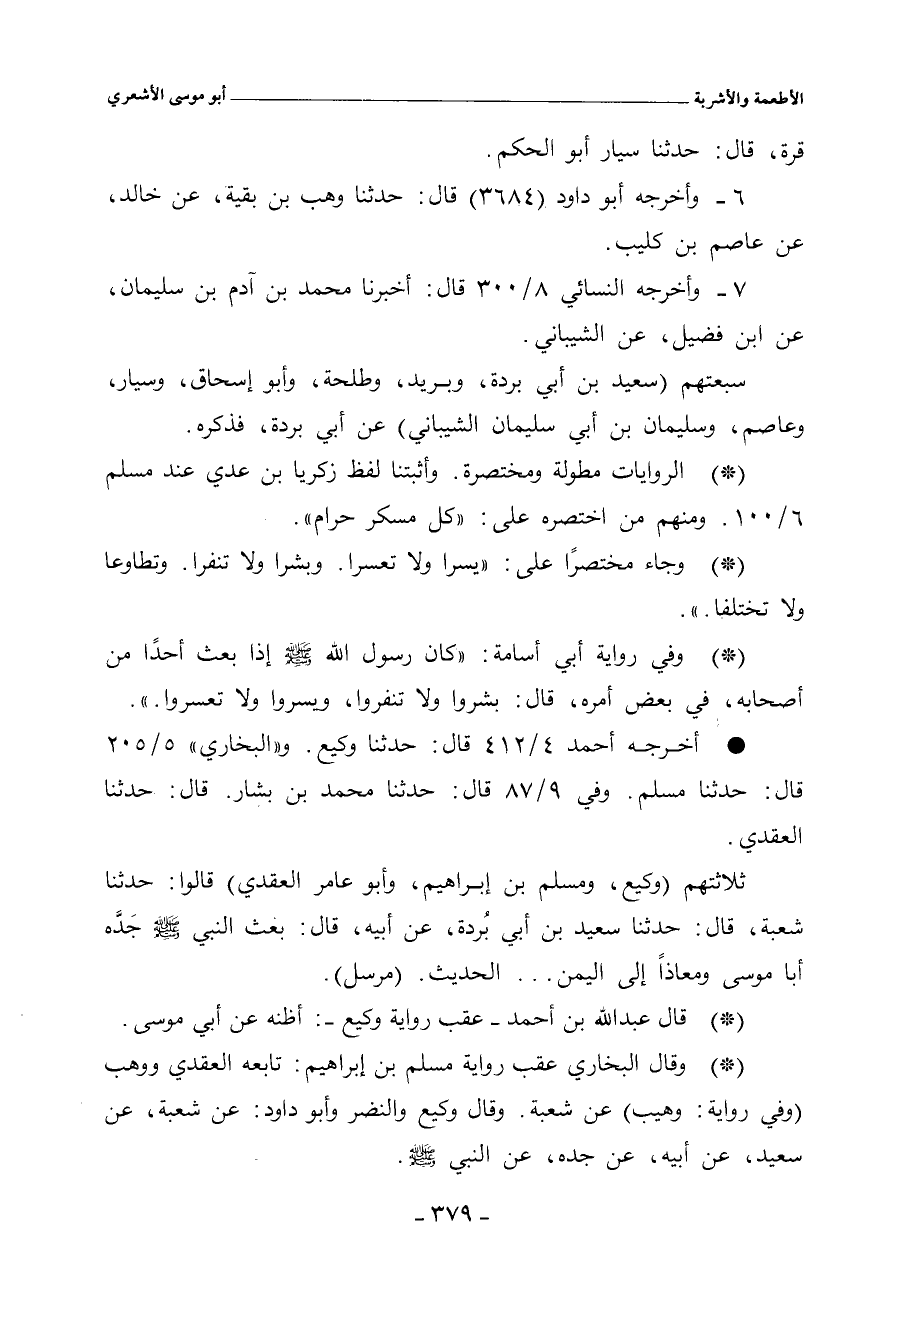 الأطعمة والأشربة ــــــــــــــــــــ أبو موسى الأشعري
قرة، قال: حدثنا سيار أبو الحكم.
٦ ـ وأخرجه أبو داود (٣٦٨٤) قال: حدثنا وهب بن بقية، عن خالد،
عن عاصم بن كليب.
٧ ـ وأخرجه النسائي ٣٠٠/٨ قال: أخبرنا محمد بن آدم بن سليمان،
عن ابن فضيل، عن الشيباني.
سبعتهم (سعيد بن أبي بردة، وبريد، وطلحة، وأبو إسحاق، وسيار،
وعاصم، وسليمان بن أبي سليمان الشيباني) عن أبي بردة، فذكره.
(*) الروايات مطولة ومختصرة. وأثبتنا لفظ زكريا بن عدي عند مسلم
١٠٠/٦. ومنهم من اختصره على: «كل مسكر حرام».
(*) وجاء مختصرًا على: «يسرا ولا تعسرا. وبشرا ولا تنفرا. وتطاوعا
ولا تختلفا.».
(*) وفي رواية أبي أسامة: «كان رسول الله ﷺ إذا بعث أحدًا من
أصحابه، في بعض أمره، قال: بشروا ولا تنفروا، ويسروا ولا تعسروا.».
● أخرجه أحمد ٤١٢/٤ قال: حدثنا وكيع. و«البخاري» ٢٠٥/٥
قال: حدثنا مسلم. وفي ٨٧/٩ قال: حدثنا محمد بن بشار. قال: حدثنا
العقدي.
ثلاثتهم (وكيع، ومسلم بن إبراهيم، وأبو عامر العقدي) قالوا: حدثنا
شعبة، قال: حدثنا سعيد بن أبي بُردة، عن أبيه، قال: بعث النبي ﷺ جَدَّه
أبا موسى ومعاذاً إلى اليمن... الحديث. (مرسل).
(*) قال عبدالله بن أحمد ـ عقب رواية وكيع ـ: أظنه عن أبي موسى.
(*) وقال البخاري عقب رواية مسلم بن إبراهيم: تابعه العقدي ووهب
(وفي رواية: وهيب) عن شعبة. وقال وكيع والنضر وأبو داود: عن شعبة، عن
سعيد، عن أبيه، عن جده، عن النبي ﷺ.
ـ ٣٧٩ ـ